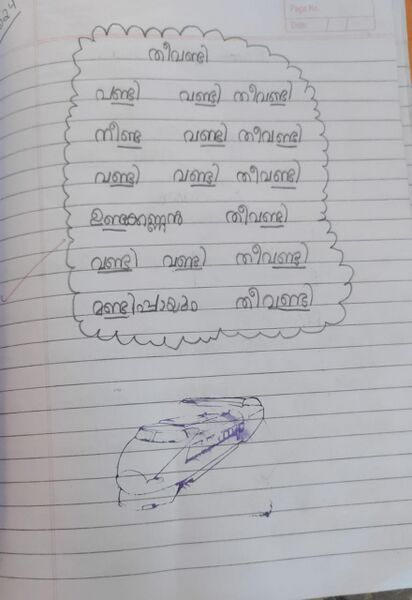 2024
Page No.
Date
തീവണ്ടി
വണ്ടി വണ്ടി തീവണ്ടി
നീണ്ട വണ്ടി തീവണ്ടി
വണ്ടി വണ്ടി തീവണ്ടി
ഉണ്ടക്കണ്ണൻ തീവണ്ടി
വണ്ടി വണ്ടി തീവണ്ടി
മണ്ടിപ്പായും തീവണ്ടി